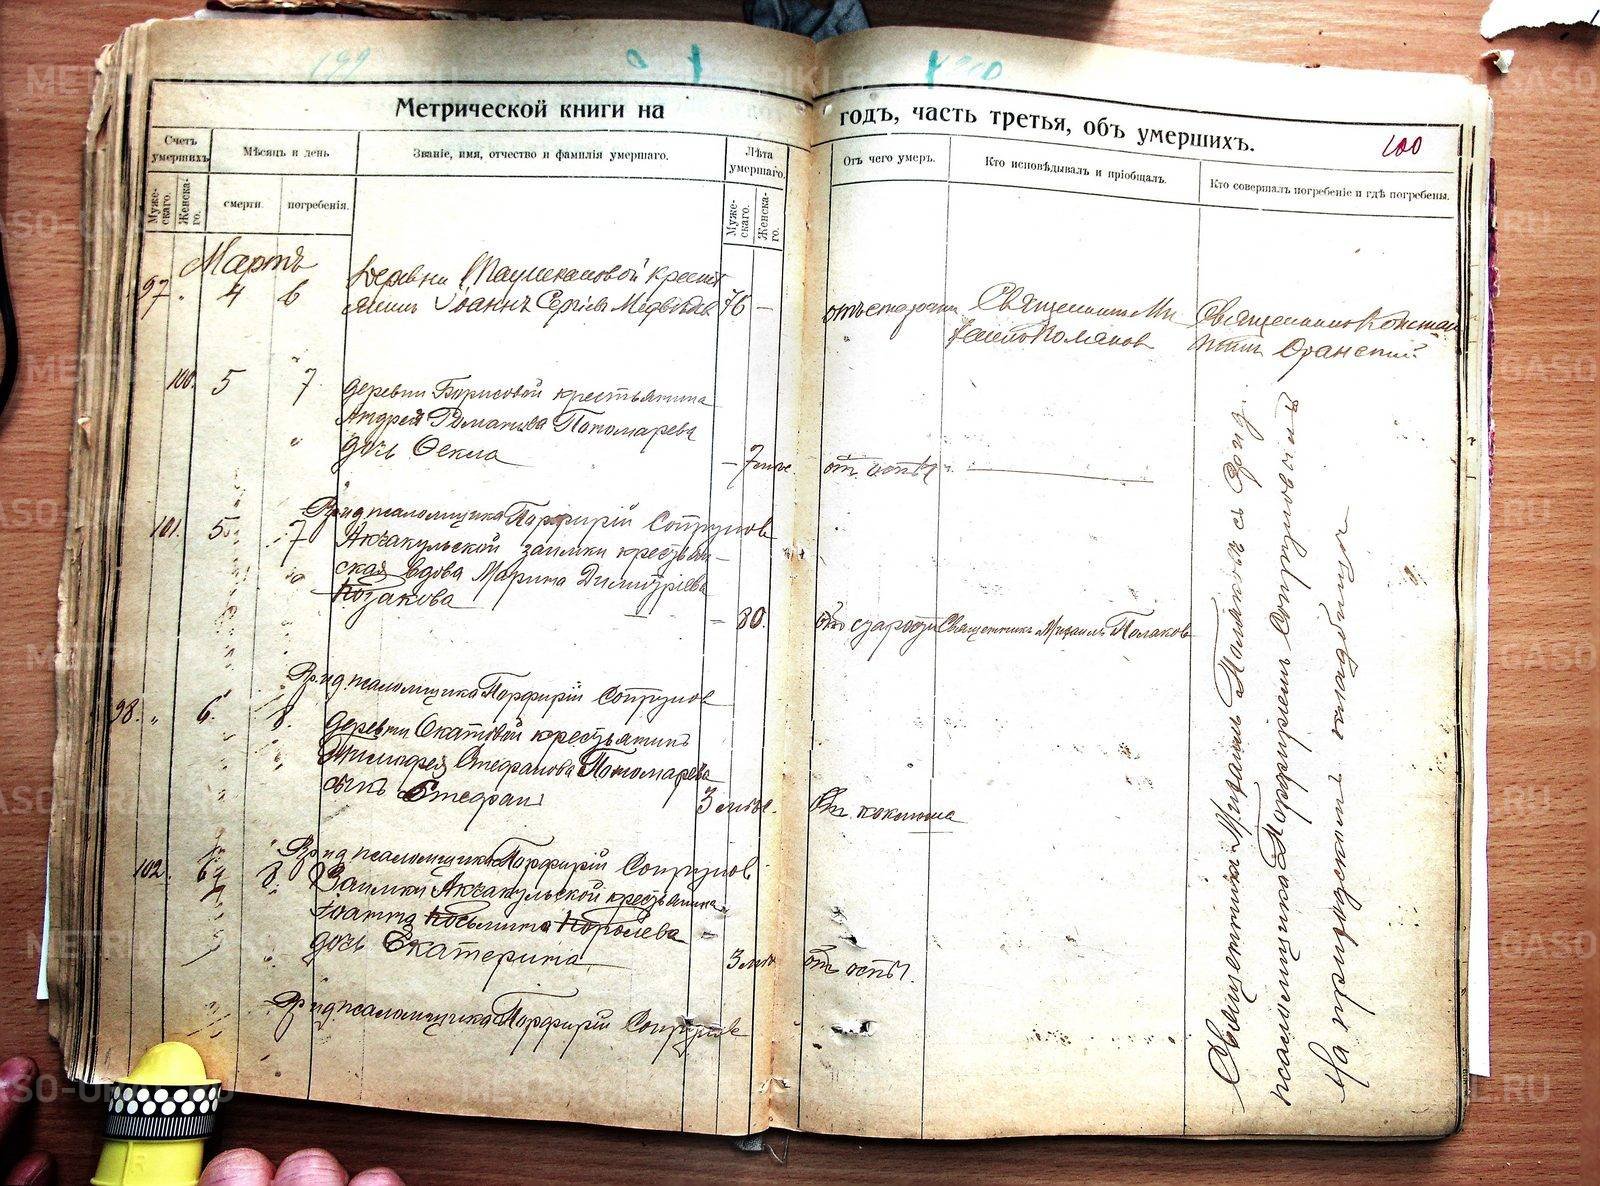 199
200
Метрической книги на
годъ, часть третья, объ умершихъ.
100
Счетъ умершихъ.
Мѣсяцъ и день
Званіе, имя, отчество и фамилія умершаго.
Лѣта умершаго.
Отъ чего умеръ.
Кто исповѣдывалъ и пріобщалъ.
Кто совершалъ погребеніе и гдѣ погребены.
Муже-скаго.
Женска-го.
смерти.
погребенія.
Муже-скаго.
Женска-го.
Мартъ
97 4 6
Деревни крестъ
янинъ Іоаннъ Сергіевъ Медвѣдевъ 76 —
отъ старости
Священникъ Ми
хаилъ Поляковъ
Священникъ Констан
тинъ Оранскій
100. 5 7
деревни Борисовой крестьянина
Андрея Романова Пономарева
дочь Фекла — 7
отъ оспы.
Врид псаломщика Порфирій Сопрунов
101. 5 7
Акчакульской заимки крестьян-
ская вдова Марина Димитріева
Козакова — 80.
отъ старости Священникъ Михаилъ Поляковъ
Врид псаломщика Порфирій Сопрунов
98. 6. 8.
деревни Скатовой крестьянинъ
Тимофея Стефанова Пономарева
сынъ Стефан 3
От коклюша
Врид псаломщика Порфирій Сопрунов
102. 6 8.
Заимки Акчакульской крестьянина
Іоанна Косьмина Королева
дочь Екатерина 3
от оспы.
Врид псаломщика Порфирій Сопрунов
Священникъ Михаилъ Поляковъ съ врид.
псаломщика Порфиріемъ Сопруновымъ
На приходскомъ кладбище